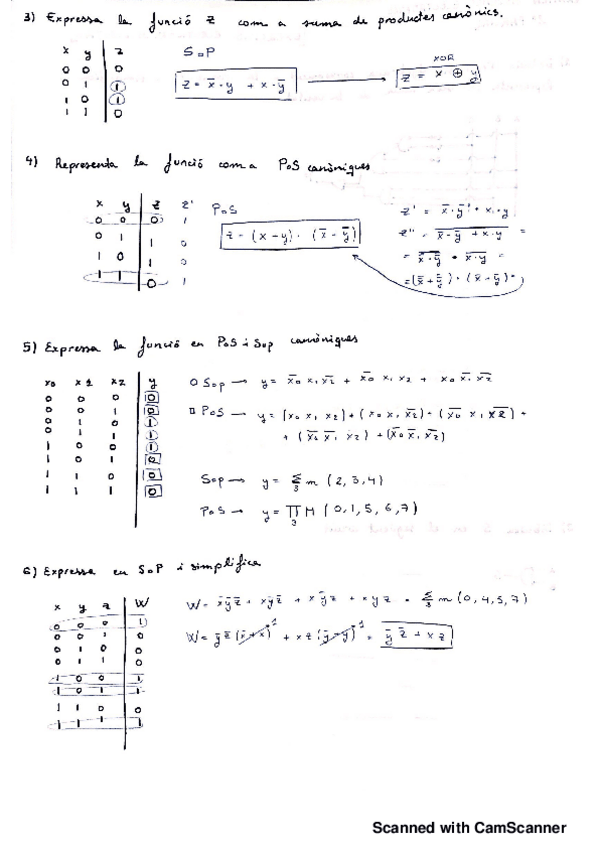 3) Expressa la funció z com a suma de productes canònics.
x y z
0 0 0
0 1 1
1 0 1
1 1 0
SoP
z = x̄·y + x·ȳ
XOR
z = x ⊕ y
4) Representa la funció com a PoS canòniques
x y z z'
0 0 0 1
0 1 1 0
1 0 1 0
1 1 0 1
PoS
z = (x-y)·(x̄-ȳ)
z' = x̄·ȳ + x·y
5) Expressa la funció en PoS i SoP canòniques
x0 x1 x2 y
0 0 0 0
0 0 1 0
0 1 0 1
0 1 1 1
1 0 0 1
1 0 1 0
1 1 0 0
1 1 1 0
SoP → y =
PoS → y =
SoP → y = Σ3 m (2,3,4)
PoS → y = ∏3 M (0,1,5,6,7)
6) Expressa en SoP i simplifica
x y z W
0 0 0 1
0 0 1 0
0 1 0 0
0 1 1 0
1 0 0 1
1 0 1 1
1 1 0 0
1 1 1 1
W = x̄ȳz̄ + xȳz̄ + xȳz + xyz = Σ3 m (0,4,5,7)
W = ȳz̄(x̄+x)¹ + xz(ȳ-y)¹ = ȳz̄ + xz
Scanned with CamScanner